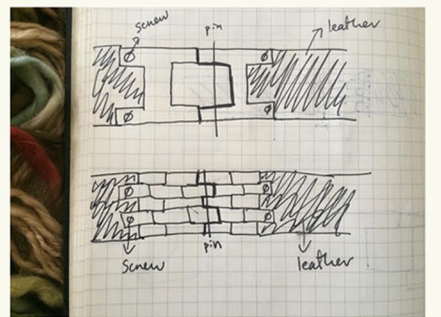 screw
pin
leather
pin
screw
leather